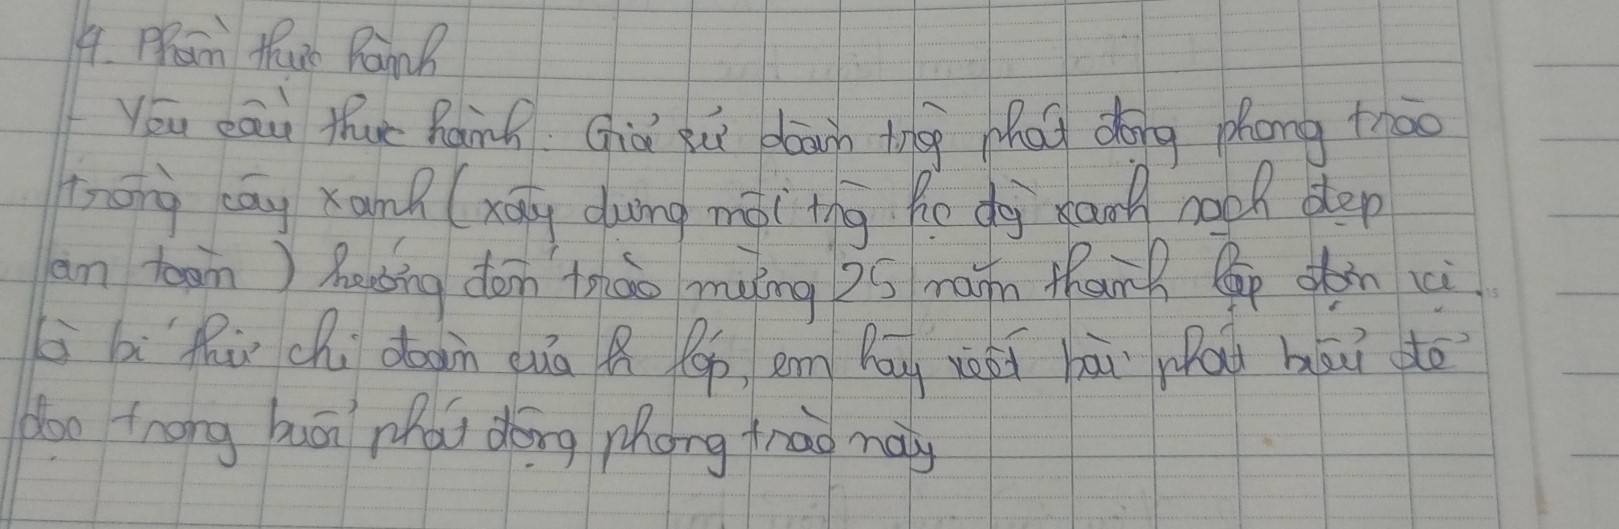 4. Phần thực hành
- Yêu cầu thực hành. Giả sử đoàn trg phát động phong trào
trồng cây xanh (xây dựng môi trg học đg xanh sạch đẹp
an toàn) hướng đến chào mừng 25 năm thành lập đơn vị.
Là bí thư chi đoàn của lớp, em hãy viết bài phát biểu để
đọc trong buổi phát động phong trào này